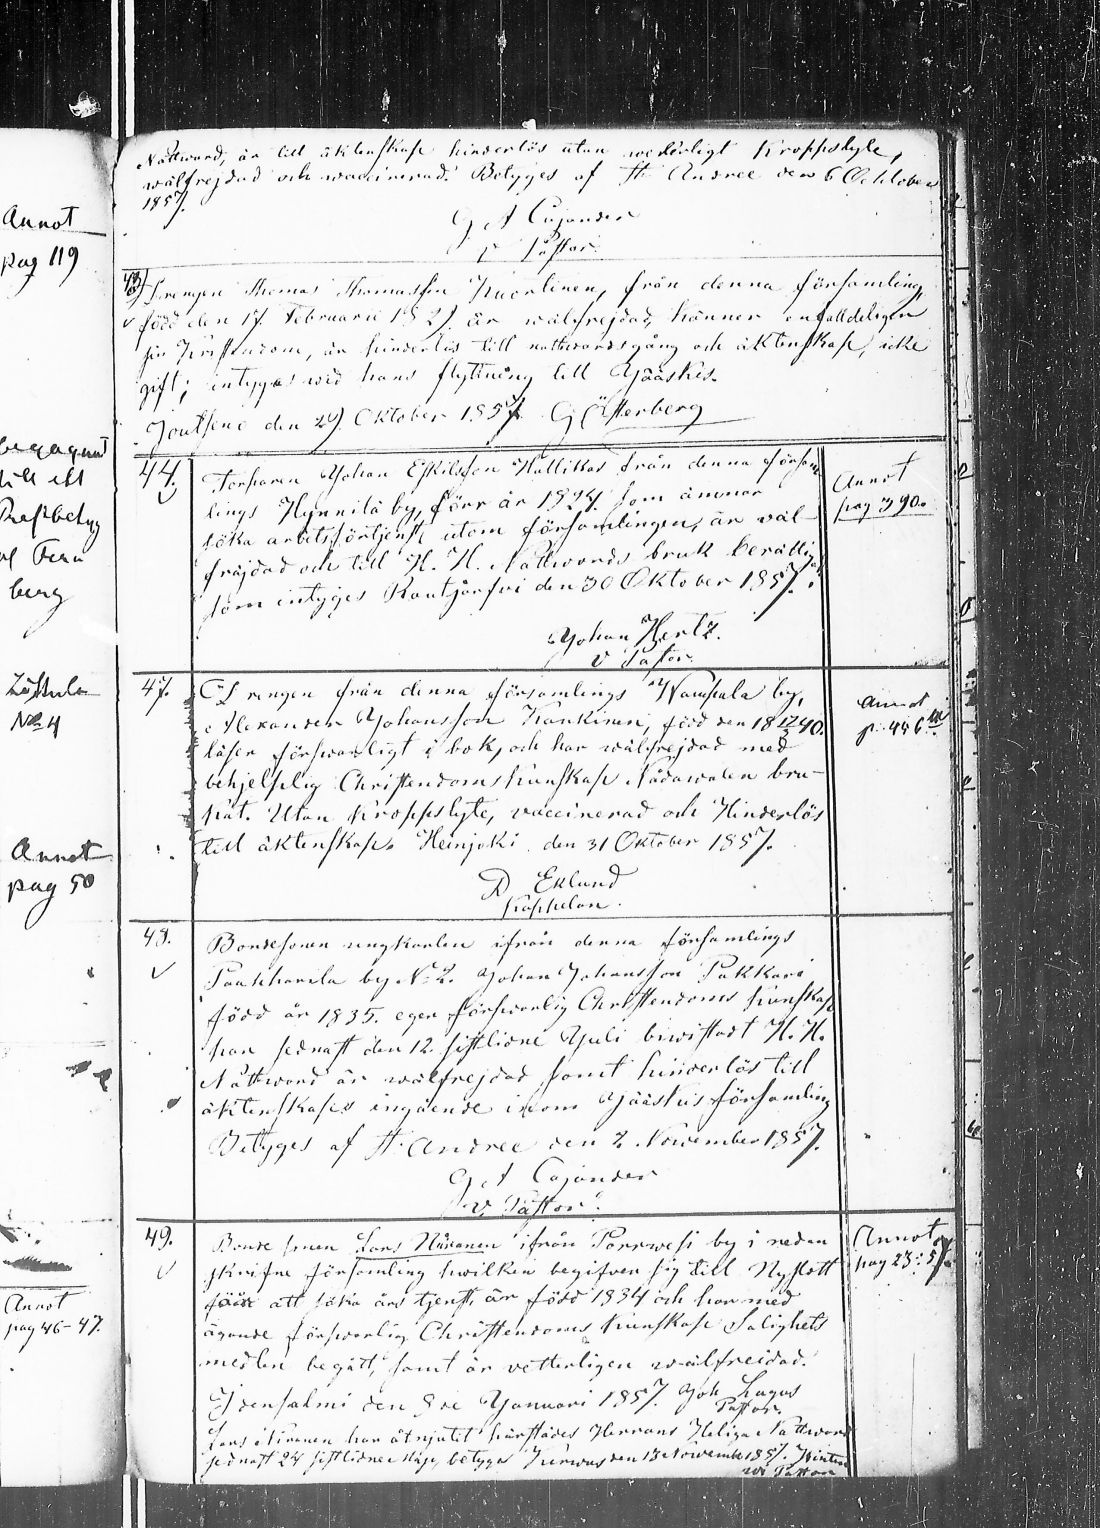 Annot
pag 119
till ett
berg
No 4
Annot
pag 50
Annot
pag 46-47.
Nattward, är till äktenskap hinderlös utan wederligt Kroppslyte,
wälfrejdad och vaccinerad. Betygges af St Andree den 6 October
1857.
G A Cajander
v Pastor.
Drengen Thomas Thomasson Kuorlinen, från denna församling,
född den 17 Februarii 182 är wälfrejdad, känner enfalldeligen
sin Kristendom, är hinderlös till nattvardsgång och äktenskap, icke
gift; intygas wid hans flyttning till Jääskis.
Joutseno den 29 Oktober 1857. G Österberg
44.
Torparen Johan Eskilsson Hallikas från denna försam
lings Hynnilä by, förr år 1824 som ämnar
söka arbetsförtjenst utom församlingen, är väl-
fräjdad och till H. H. Nattwards bruk berättigad
som intyges Rautjärfvi den 30 Oktober 1857.
Johan Hertz.
v Pastor
Annot
pag 390.
47.
Drengen från denna församlings Kämpälä by,
Alexander Johansson Kankinen, född den 18 12/3 40.
läser förswarligt i bok, och har wälfrejdad med
behjelplig Christendoms kunskap Nådawalen bru-
kat. Utan Kroppslyte, vaccinerad och Hinderlös
till äktenskap. Heinjoki den 31 Oktober 1857.
D Eklund
Kapellan.
Annot
p. 446
48.
Bondesonen ungkarlen ifrån denna församlings
Paakkarila by No 2. Johan Johansson Pakkari
född år 1835. eger förswarlig Christendoms kunskap
har sednast den 12 sistlidne Juli biwistadt H. H.
Nattward är wälfrejdad samt hinderlös till
äktenskaps ingående inom Jääskis församling
Betyges af St Andree den 2 November 1857.
G A Cajander
v. Pastor.
49.
Bonde sonen Lars Niiranen ifrån Porrwesi by i nedan
skrifne församling hwilken begifver sig till Nyslott
för att söka års tjenst, är född 1834 och har med
ägande förswarlig Christendoms kunskap Salighets
medlen begått, samt är vetterligen wälfreidad.
Idensalmi den 8de Januari 1857. Joh Lagus
Pastor.
Lars Niiranen har åtnjutit härstädes Herrans Heliga Nattward
sednast 24 sistlidne Maji, betygas den 13 November 1857.
v Pastor
Annot
pag 23:57.